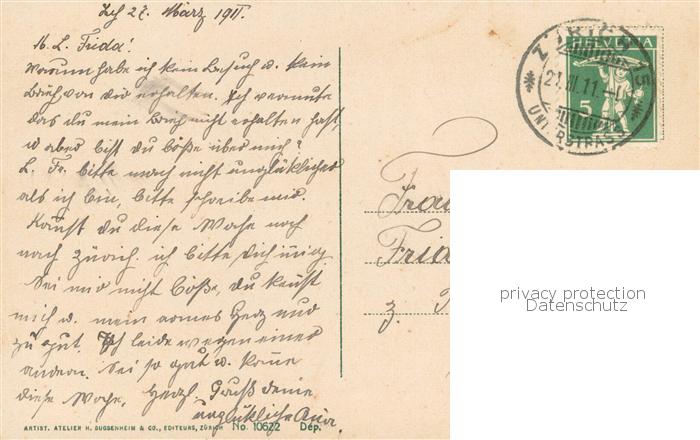 Zch 27. März 1911.
M. L. Frida!
Warum habe ich kein Besuch u. kein
Brief von dir erhalten. Ich vermute
das du mein Brief nicht erhalten hast,
u aber bist du böße über mich?
L. Fr. bitte mach mich nicht unglücklicher
als ich bin, bitte schreibe mir.
Kannst du diese Woche noch
nach Zürich. ich bitte dich innig
Sei mir nicht Böße, du kenst
mich u. mein armes Herz nur
zu gut. Ich leide wegen einer
andern. Sei so gut u. komme
diese Woche, Herzl. Gruß deine
unglückliche
ARTIST. ATELIER H. GUGGENHEIM & CO., EDITEURS, ZÜRICH No. 10622 Dép.
ZÜRICH 15
HELVETIA
21.III.11.
5
UNIVERSTRASSE
Frau
Frid
z.
privacy protection
Datenschutz